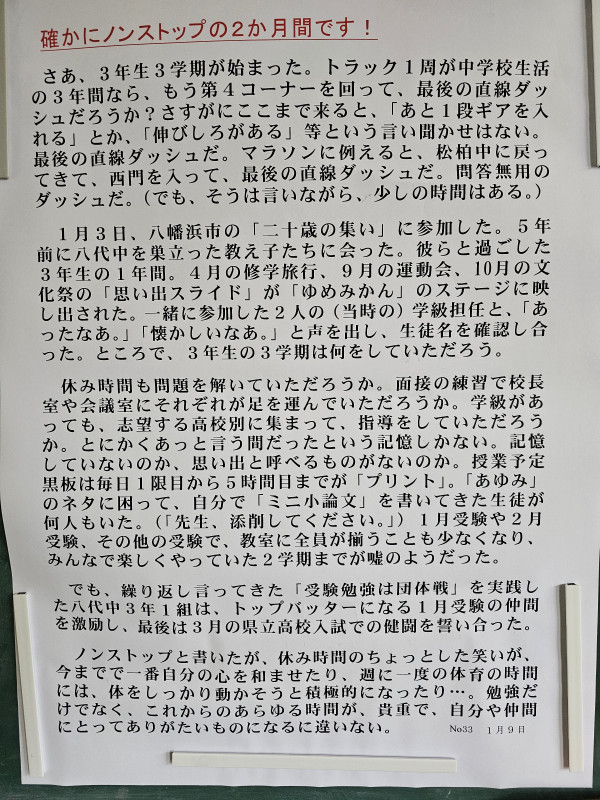 確かにノンストップの２か月間です！
さあ、３年生３学期が始まった。トラック１周が中学校生活
の３年間なら、もう第４コーナーを回って、最後の直線ダッ
シュだろうか？さすがにここまで来ると、「あと１段ギアを入
れる」とか、「伸びしろがある」等という言い聞かせはない。
最後の直線ダッシュだ。マラソンに例えると、松柏中に戻っ
てきて、西門を入って、最後の直線ダッシュだ。問答無用の
ダッシュだ。（でも、そうは言いながら、少しの時間はある。）
１月３日、八幡浜市の「二十歳の集い」に参加した。５年
前に八代中を巣立った教え子たちに会った。彼らと過ごした
３年生の１年間。４月の修学旅行、９月の運動会、10月の文
化祭の「思い出スライド」が「ゆめみかん」のステージに映
し出された。一緒に参加した２人の（当時の）学級担任と、「あ
ったなあ。」「懐かしいなあ。」と声を出し、生徒名を確認し合
った。ところで、３年生の３学期は何をしていただろう。
休み時間も問題を解いていただろうか。面接の練習で校長
室や会議室にそれぞれが足を運んでいただろうか。学級があ
っても、志望する高校別に集まって、指導をしていただろう
か。とにかくあっと言う間だったという記憶しかない。記憶
していないのか、思い出と呼べるものがないのか。授業予定
黒板は毎日１限目から５時間目までが「プリント」。「あゆみ」
のネタに困って、自分で「ミニ小論文」を書いてきた生徒が
何人もいた。（「先生、添削してください。」）１月受験や２月
受験、その他の受験で、教室に全員が揃うことも少なくなり、
みんなで楽しくやっていた２学期までが嘘のようだった。
でも、繰り返し言ってきた「受験勉強は団体戦」を実践し
た八代中３年１組は、トップバッターになる１月受験の仲間
を激励し、最後は３月の県立高校入試での健闘を誓い合った。
ノンストップと書いたが、休み時間のちょっとした笑いが、
今までで一番自分の心を和ませたり、週に一度の体育の時間
には、体をしっかり動かそうと積極的になったり…。勉強だ
けでなく、これからのあらゆる時間が、貴重で、自分や仲間
にとってありがたいものになるに違いない。
No33　１月９日